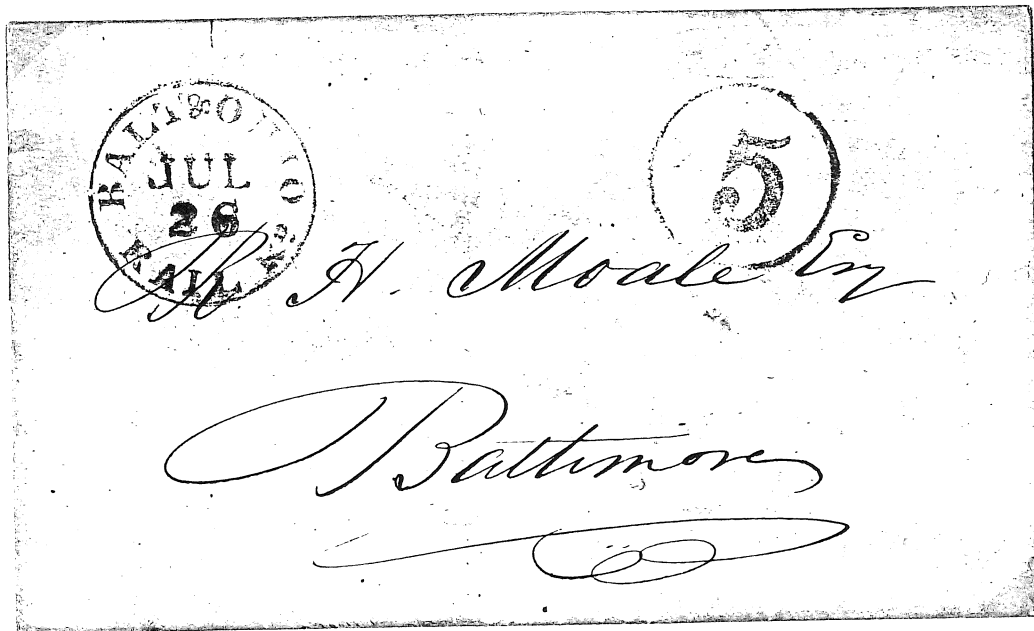 BALT & OHIO R.R.
JUL
26
RAIL
5
R. H. Moale Esq
Baltimore